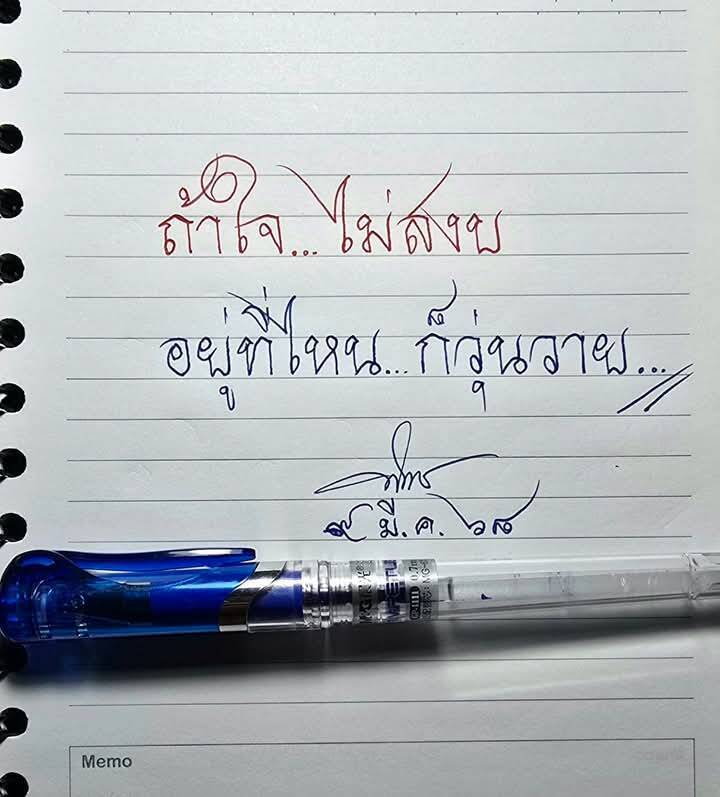 ถ้าใจ...ไม่สงบ
อยู่ที่ไหน...ก็วุ่นวาย...
๙ มี.ค. ๖๘
0.7
Memo